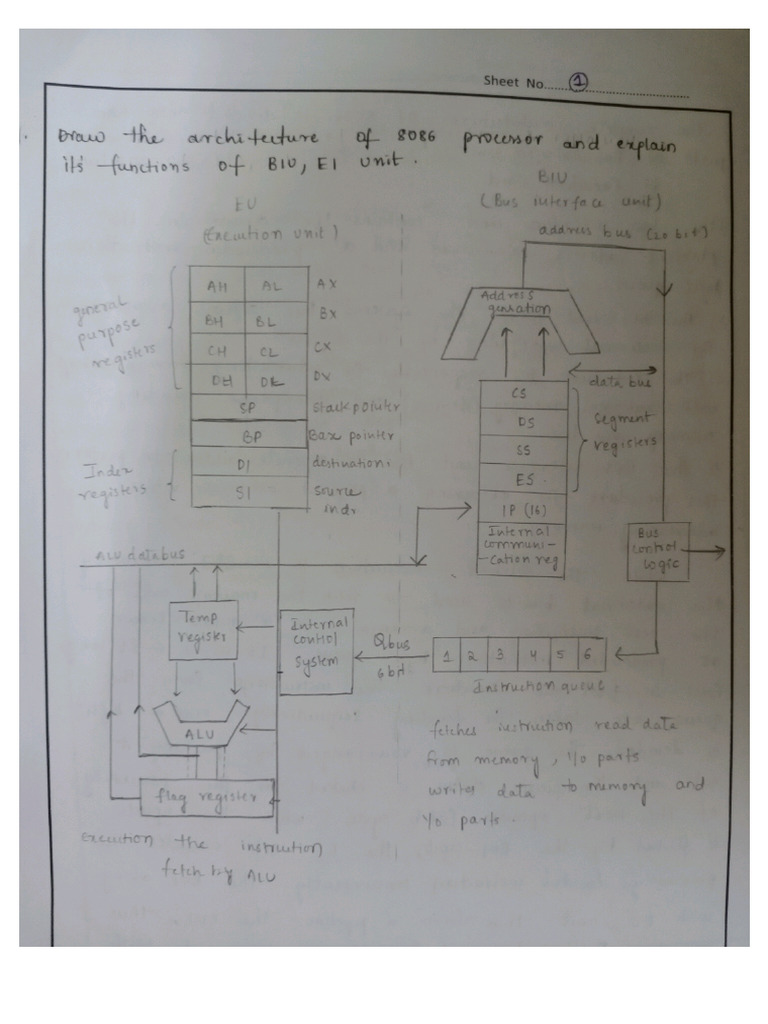 Sheet No. 1
Draw the architecture of 8086 processor and explain
its functions of BIU, EI unit.
EU
(Execution unit)
BIU
(Bus interface unit)
address bus (20 bit)
general
purpose
registers
AH AL AX
BH BL BX
CH CL CX
DH DL DX
SP stack pointer
BP Base pointer
Index
registers
DI destination
SI source
indx
Address
genration
data bus
CS
DS
SS
ES
IP (16)
Internal
communi-
-cation reg
segment
registers
Bus
control
Logic
ALU databus
Temp
register
Internal
control
system
Qbus
6 bit
1 2 3 4 5 6
Instruction queue
ALU
flag register
Execution the instruction
fetch by ALU
fetches instruction read data
from memory, I/O parts
writes data to memory and
I/O parts.